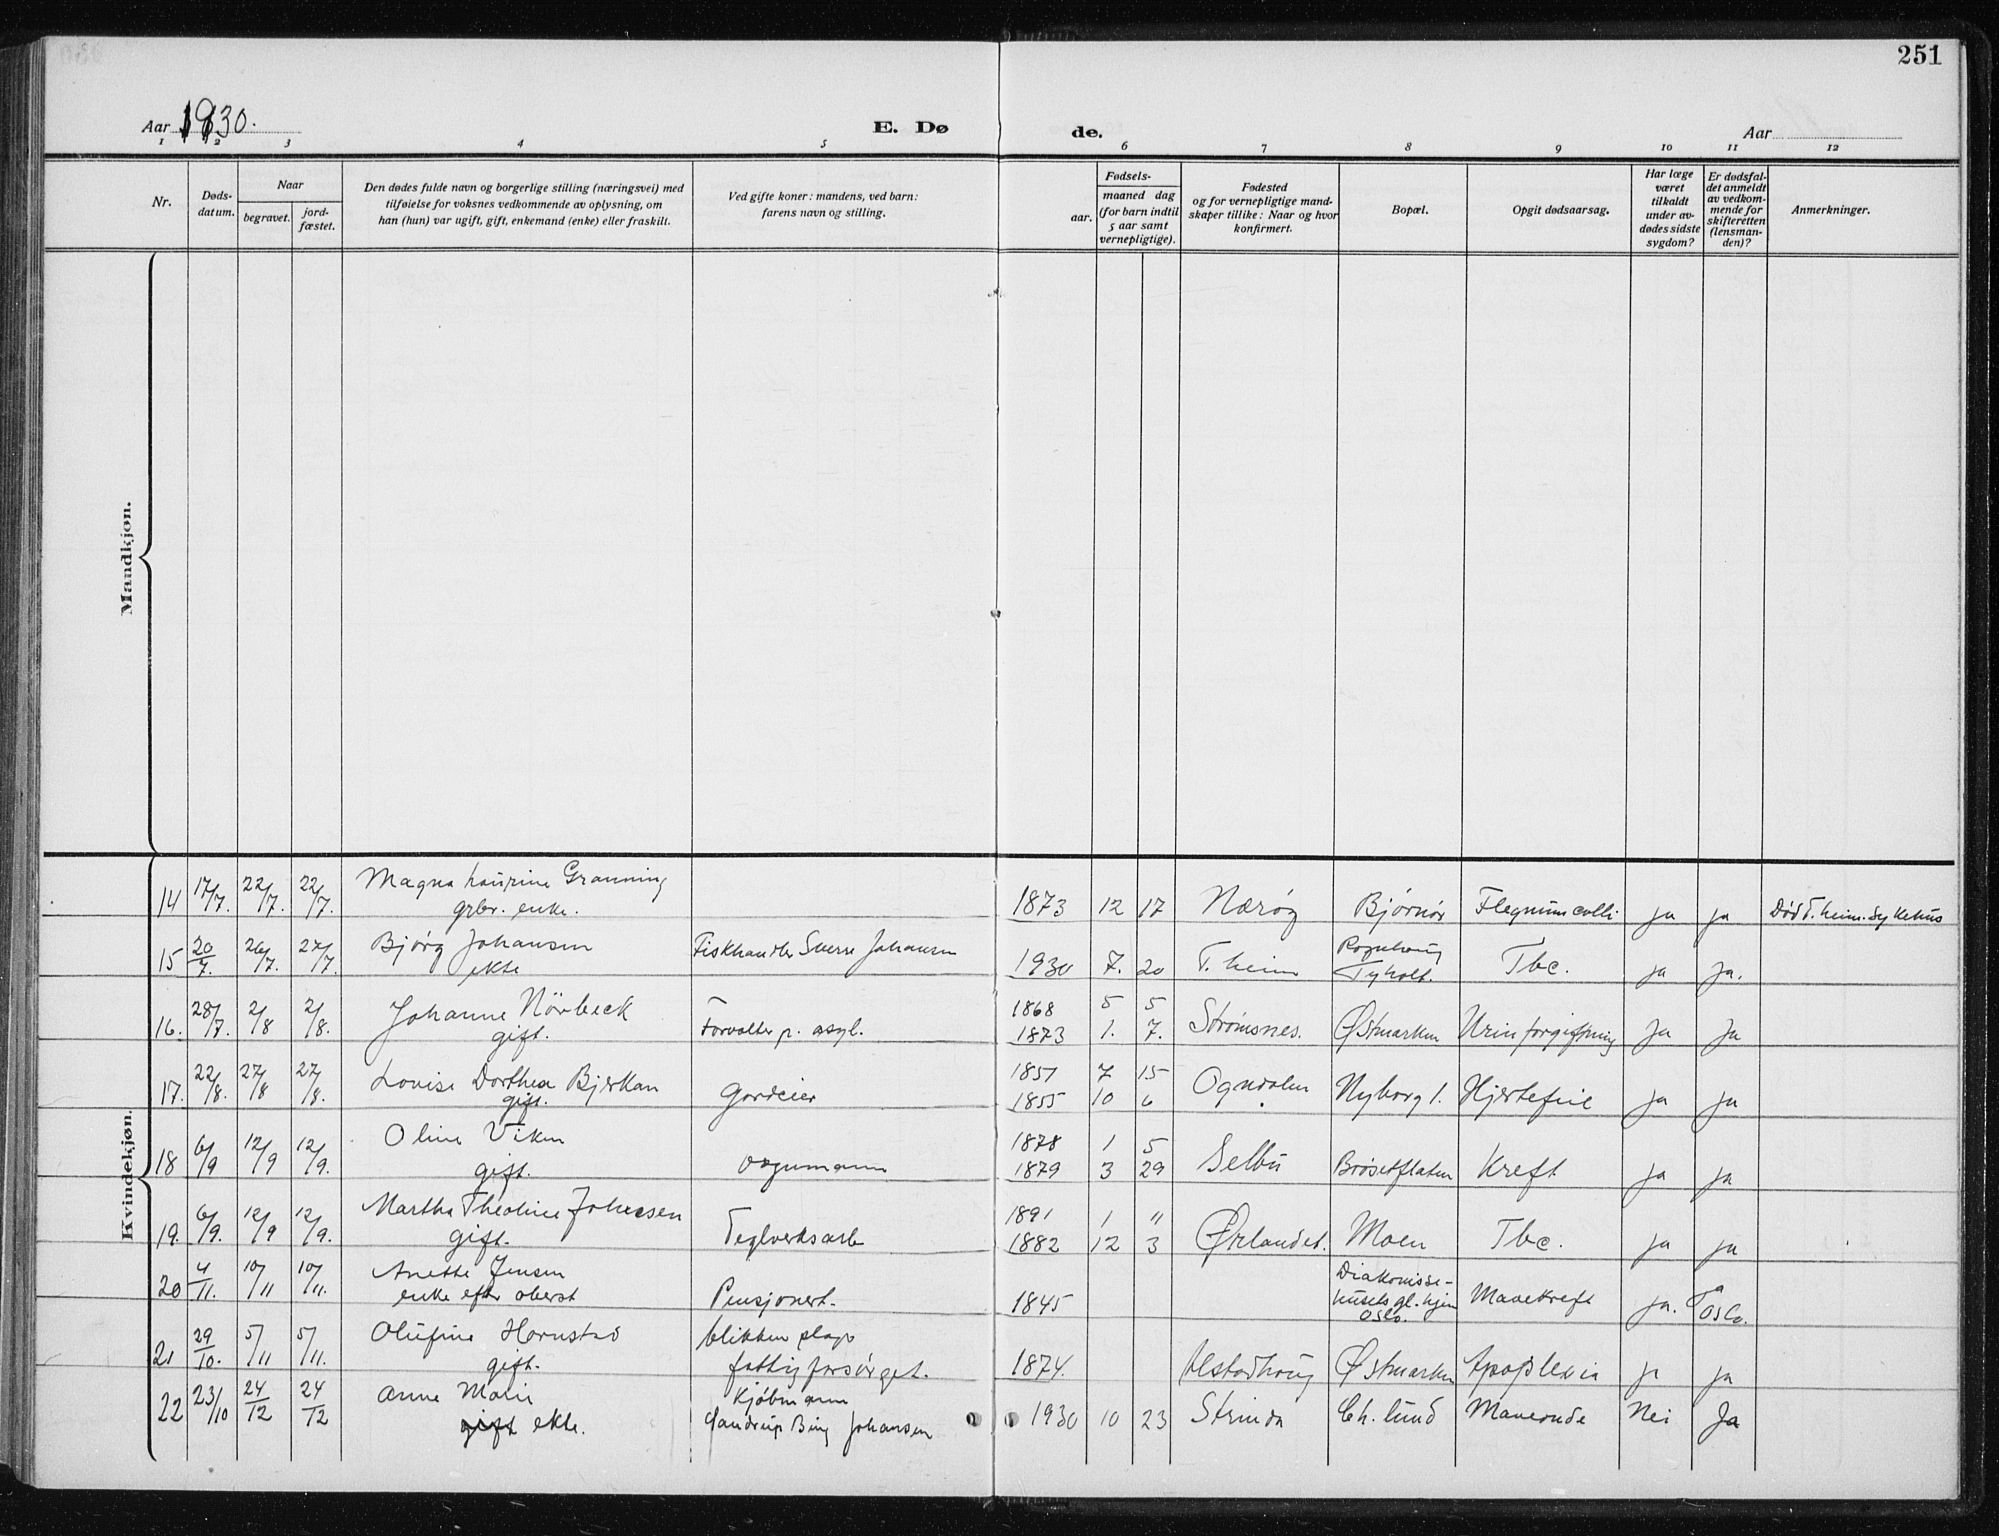 251
Aar 1930.
E. Dø
de.
Aar
1 2 3 4 5 6 7 8 9 10 11 12
Nr.
Døds-
datum.
Naar
begravet.
jord-
fæstet.
Den dødes fulde navn og borgerlige stilling (næringsvei) med
tilføielse for voksnes vedkommende av oplysning, om
han (hun) var ugift, gift, enkemand (enke) eller fraskilt.
Ved gifte koner: mandens, ved barn:
farens navn og stilling.
Fødsels-
aar.
maaned dag
(for barn indtil
5 aar samt
vernepligtige).
Fødested
og for vernepligtige mand-
skaper tillike: Naar og hvor
konfirmert.
Bopæl.
Opgit dødsaarsag.
Har læge
været
tilkaldt
under av-
dødes sidste
sygdom?
Er dødsfal-
det anmeldt
av vedkom-
mende for
skifteretten
(lensman-
den)?
Anmerkninger.
Mandkjøn.
Kvindekjøn.
14 17/7. 22/7. 22/7. Magna Laurine Granning
grbr. enke.
1873 12 17 Nærøy Bjørnør Flegmum colli ja ja Død T.heim. Sykehus
15 20/7. 26/7. 27/7. Bjørg Johansen
ekte
Fiskhandler Sverre Johansen
1930 7. 20 T.heim
Tyholt. Tbc. ja Ja.
16. 28/7. 2/8 2/8. Johanne Nörbeck
gift.
Forvalter p. asyl.
1868 5 5
1873 1. 7. Strømsnes. Østmarken Urinforgiftning Ja Ja
17. 22/8. 27/8 27/8. Lovise Dorthea Bjerkan
gift.
Gardeier
1851 7 15
1855 10 6 Ogndalen Nyborg l. Hjertefeil Ja Ja
18 6/9 12/9 12/9. Oline Viken
gift.
vognmann
1878 1 5
1879 3 29 Selbu Brøsetflaten Kreft Ja Ja
19. 6/9. 12/9 12/9. Martha Theoline Johansen
gift.
Teglverksarb
1891 1 "
1882 12 3 Ørlandet. Moen Tbc. ja ja
20 4/11. 10/11 10/11. Anette Jensen
enke efter oberst
Pensjonert.
1845
Diakonisse-
husets gl.hjem
Oslo. Mavekreft ja. Oslo.
21 29/10. 5/11 5/11. Olufine Hornstad
gift.
blikken slager
fattigforsørget.
1874. Alstadhaug Østmarken Apoplexia ja ja
22 23/10 24/12 24/12 Anne Marie
gift ekte.
Kjøbmann
Sandrup Bing Johansen
1930 10 23 Strinda Ch. lund Maveonde Nei Ja